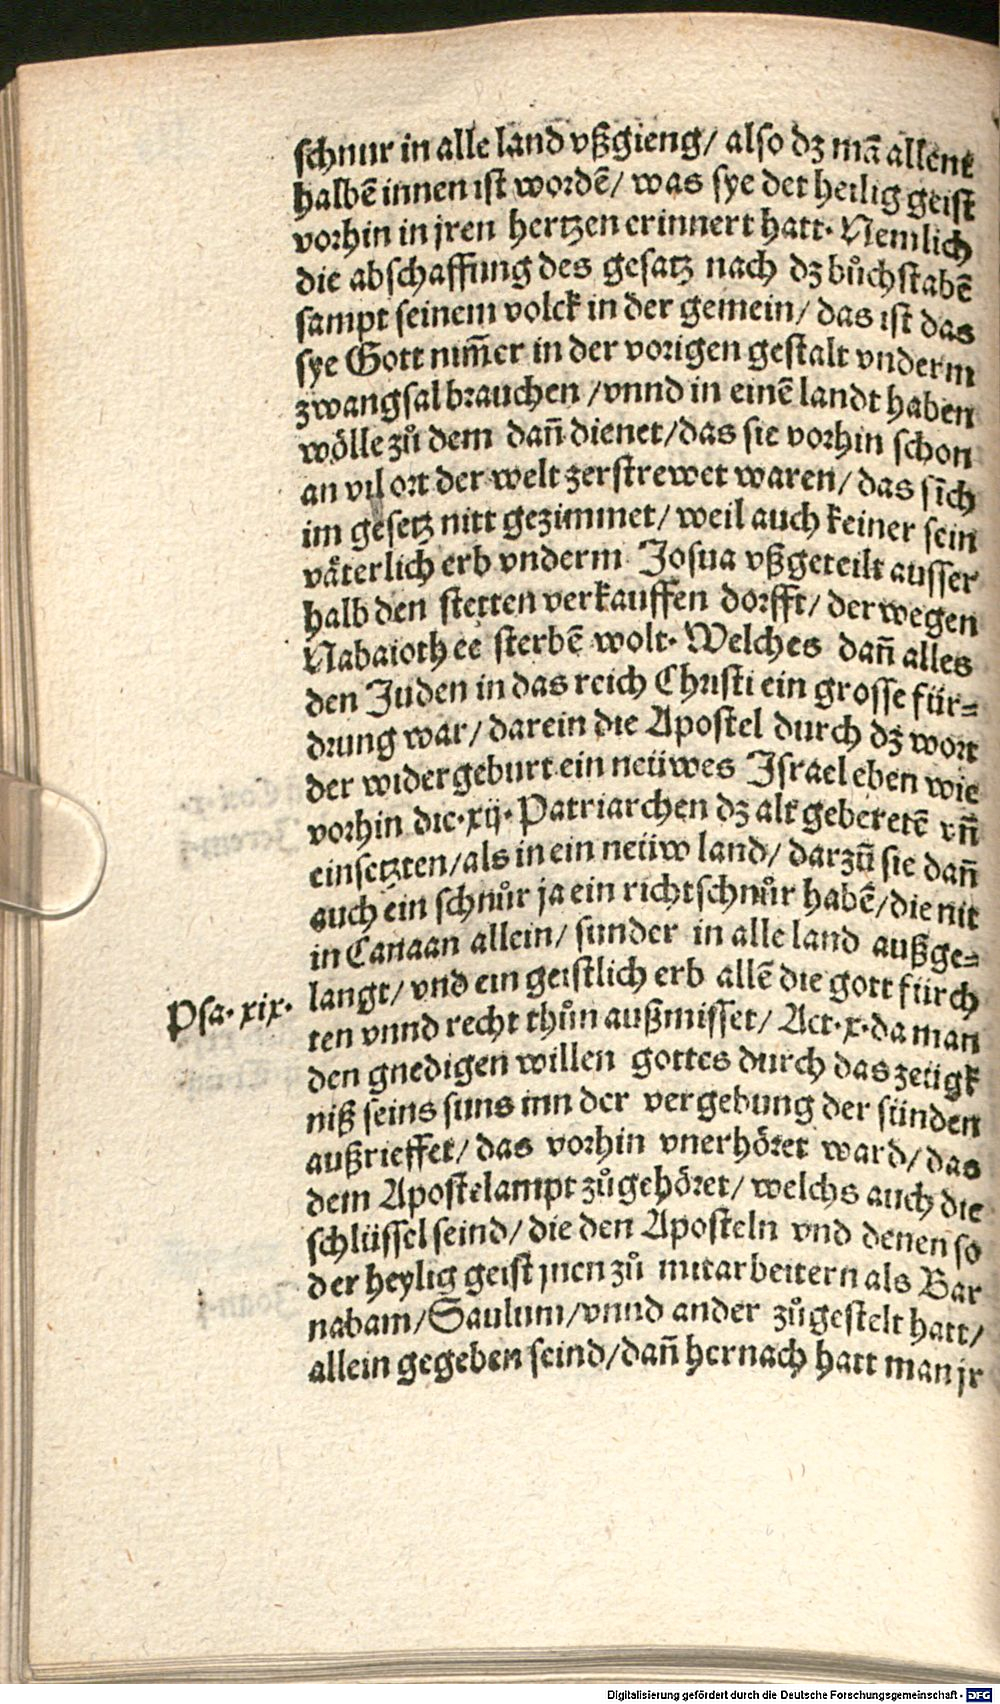 schnur in alle land vßgieng/ also dz mā allent
halbē innen ist wordē/ was sye der heilig geist
vorhin in jren hertzen erinnert hatt. Nemlich
die abschaffung des gesatz nach dz bůchstabē
sampt seinem volck in der gemein/ das ist das
sye Gott nim̄er in der vorigen gestalt vnderm
zwangsal brauchen /vnnd in einē landt haben
wölle zů dem dan̄ dienet/das sie vorhin schon
an vil ort der welt zerstrewet waren/ das sich
im gesetz nitt gezimmet/ weil auch keiner sein
väterlich erb vnderm Josua vßgeteilt ausser
halb den stetten verkauffen dorfft/ derwegen
Nabaioth ee sterbē wolt. Welches dan̄ alles
den Juden in das reich Christi ein grosse für=
drung war/ darein die Apostel durch dz wort
der widergeburt ein neüwes Israel eben wie
vorhin die.xij. Patriarchen dz alt geberetē vn̄
einsetzten/als in ein neüw land/ darzů sie dan̄
auch ein schnůr ja ein richtschnůr habē/die nit
in Canaan allein/ sunder in alle land außge=
Psa. xix. langt/ vnd ein geistlich erb allē die gott fürch
ten vnnd recht thůn außmisset/ Act.x.da man
den gnedigen willen gottes durch das zeügk
niß seins suns inn der vergebung der sünden
außrieffet/ das vorhin vnerhöret ward/ das
dem Apostelampt zůgehöret/ welchs auch die
schlüssel seind/ die den Aposteln vnd denen so
der heylig geist jnen zů mitarbeitern als Bar
nabam/Saulum/vnnd ander zůgestelt hatt/
allein gegeben seind/dan̄ hernach hatt man jr
Digitalisierung gefördert durch die Deutsche Forschungsgemeinschaft - DFG